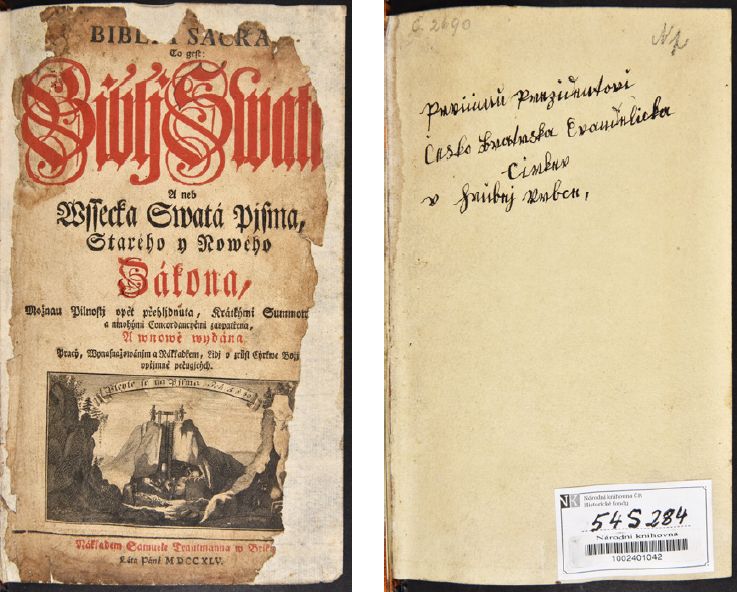 BIBLIA SACRA
To gest:
Biblj Swatá
A neb
Wssecka Swatá Pjsma,
Starého y Nowého
Zákona,
Možnau Pilnostj opět přehlídnuta, Krátkými Summou
a mnohými Concordancyemi zaopatřena,
A wnowě wydána
Pracý, Wynasnažowánjm a Nákladem, Lidj o zrůst Cýrkwe Božj
vpřjmně pečugjcých.
Pteyte se na Pjsma
Nákladem Samuele Trautmanna w Brike
Léta Páně MDCCXLV.
C. 2690
Prvnímu Prezidentovi
Česko bratrska Evandělicka
Cirkev
v Hrubej Vrbce,
NK
Národní knihovna ČR
Historické fondy
54 S 284
Národní knihovna
1002401042